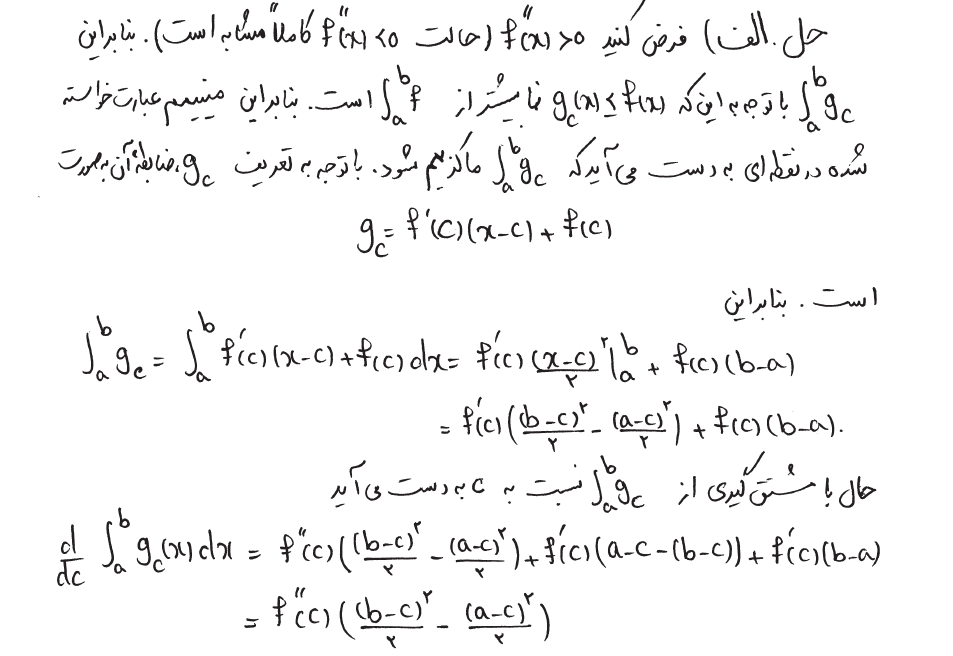 حل. الف) فرض کنید f''(x) > 0 (حالت f''(x) < 0 کاملاً مشابه است). بنابراین
∫_a^b g_c با توجه به این که g_c(x) ≤ f(x) نا بیشتر از ∫_a^b f است. بنابراین مینیمم عبارت خواسته
شده در نقطه‌ای به دست می‌آید که ∫_a^b g_c ماکزیمم شود. با توجه به تعریف g_c، ضابطهٔ آن به صورت
g_c = f'(c)(x-c) + f(c)
است. بنابراین
∫_a^b g_c = ∫_a^b f'(c)(x-c) + f(c) dx = f'(c) (x-c)^۲/۲ |_a^b + f(c)(b-a)
= f'(c)((b-c)^۲/۲ - (a-c)^۲/۲) + f(c)(b-a).
حال با مشتق‌گیری از ∫_a^b g_c نسبت به c به دست می‌آید
d/dc ∫_a^b g_c(x) dx = f''(c)((b-c)^۲/۲ - (a-c)^۲/۲) + f'(c)(a-c-(b-c)) + f'(c)(b-a)
= f''(c)((b-c)^۲/۲ - (a-c)^۲/۲)